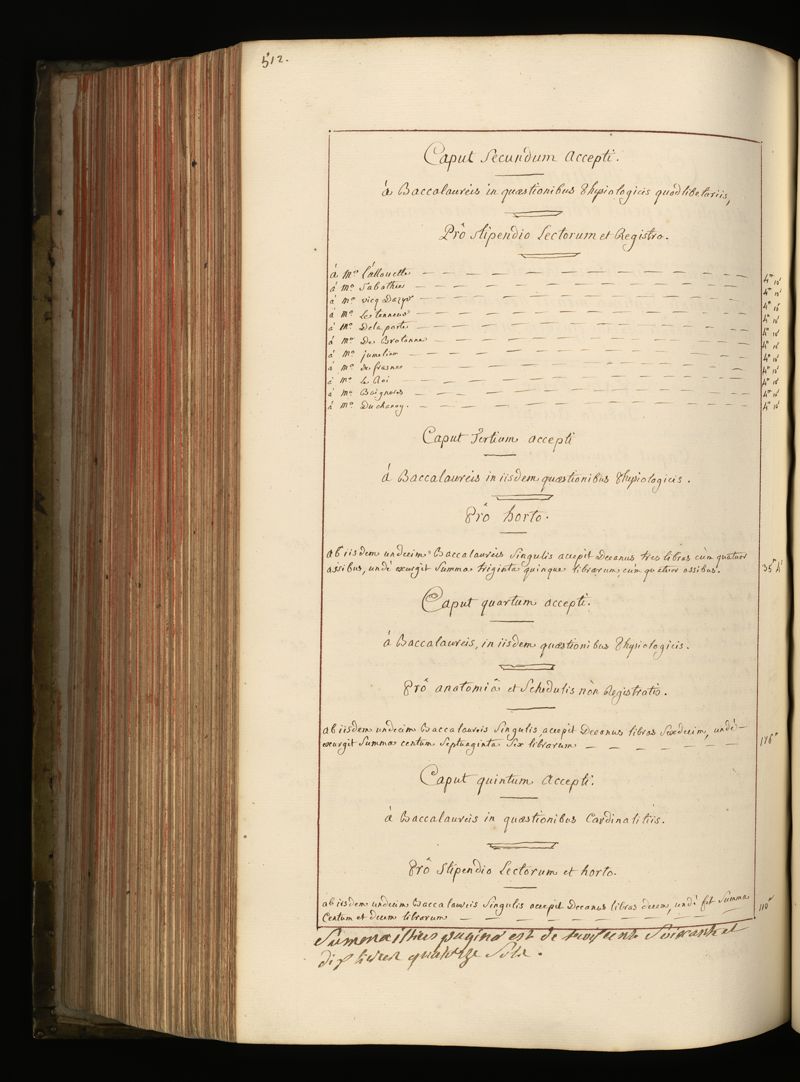 512.
Caput Secundum Accepti.
á Baccalaureis in quæstionibus Physiologicis quodlibetariis,
Prô stipendio Lectorum et Registro.
á Mro L'allouette 4tt 10s
á Mro Sabathier 4tt 10s
á Mro vicq Dazyr 4tt 10s
á Mro Le tenneur 4tt 10s
á Mro Dela porte 4tt 10s
á Mro De Brotonne 4tt 10s
á Mro jumelin 4tt 10s
á Mro de frasne 4tt 10s
á Mro le Roi 4tt 10s
á Mro Baigneres 4tt 10s
á Mro Duchanoy. 4tt 10s
Caput Tertium accepti
á Baccalaureis in iisdem quæstionibus Physiologicis.
Prô horto.
ab iisdem undecim Baccalaureis Singulis accepit Decanus tres libras cùm quatuor
assibus, undè exurgit Summa triginta quinque librarum, cum quatuor assibus. 35tt 4s
Caput quartum accepti.
á Baccalaureis, in iisdem quæstionibus Physiologicis.
Prô anatomiâ et Schedulis nòn Registratis.
ab iisdem undecim Baccalaureis Singulis accepit Decanus libras Sexdecim, undè
exurgit Summa centum Septuaginta Sex librarum 176tt
Caput quintum Accepti.
á Baccalaureis in quæstionibus Cardinalitiis.
Prô Stipendio Lectorum et horto.
ab iisdem undecim Baccalaureis Singulis accepit Decanus libras decem, undè fit Summa
Centum et decem librarum 110tt
Summa illius paginæ est de trois cents Soixante et
dix livres quatorze Sols.